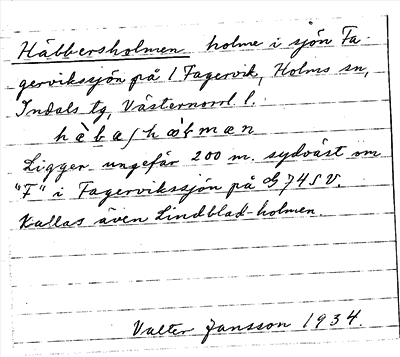 Häbbersholmen holme i sjön Fa-
gervikssjön på 1 Fagervik, Holms sn,
Indals tg, Västernorrl. l.
Ligger ungefär 200 m. sydväst om
"F" i Fagervikssjön på G 74 SV.
Kallas även Lindblad-holmen.
Valter Jansson 1934.